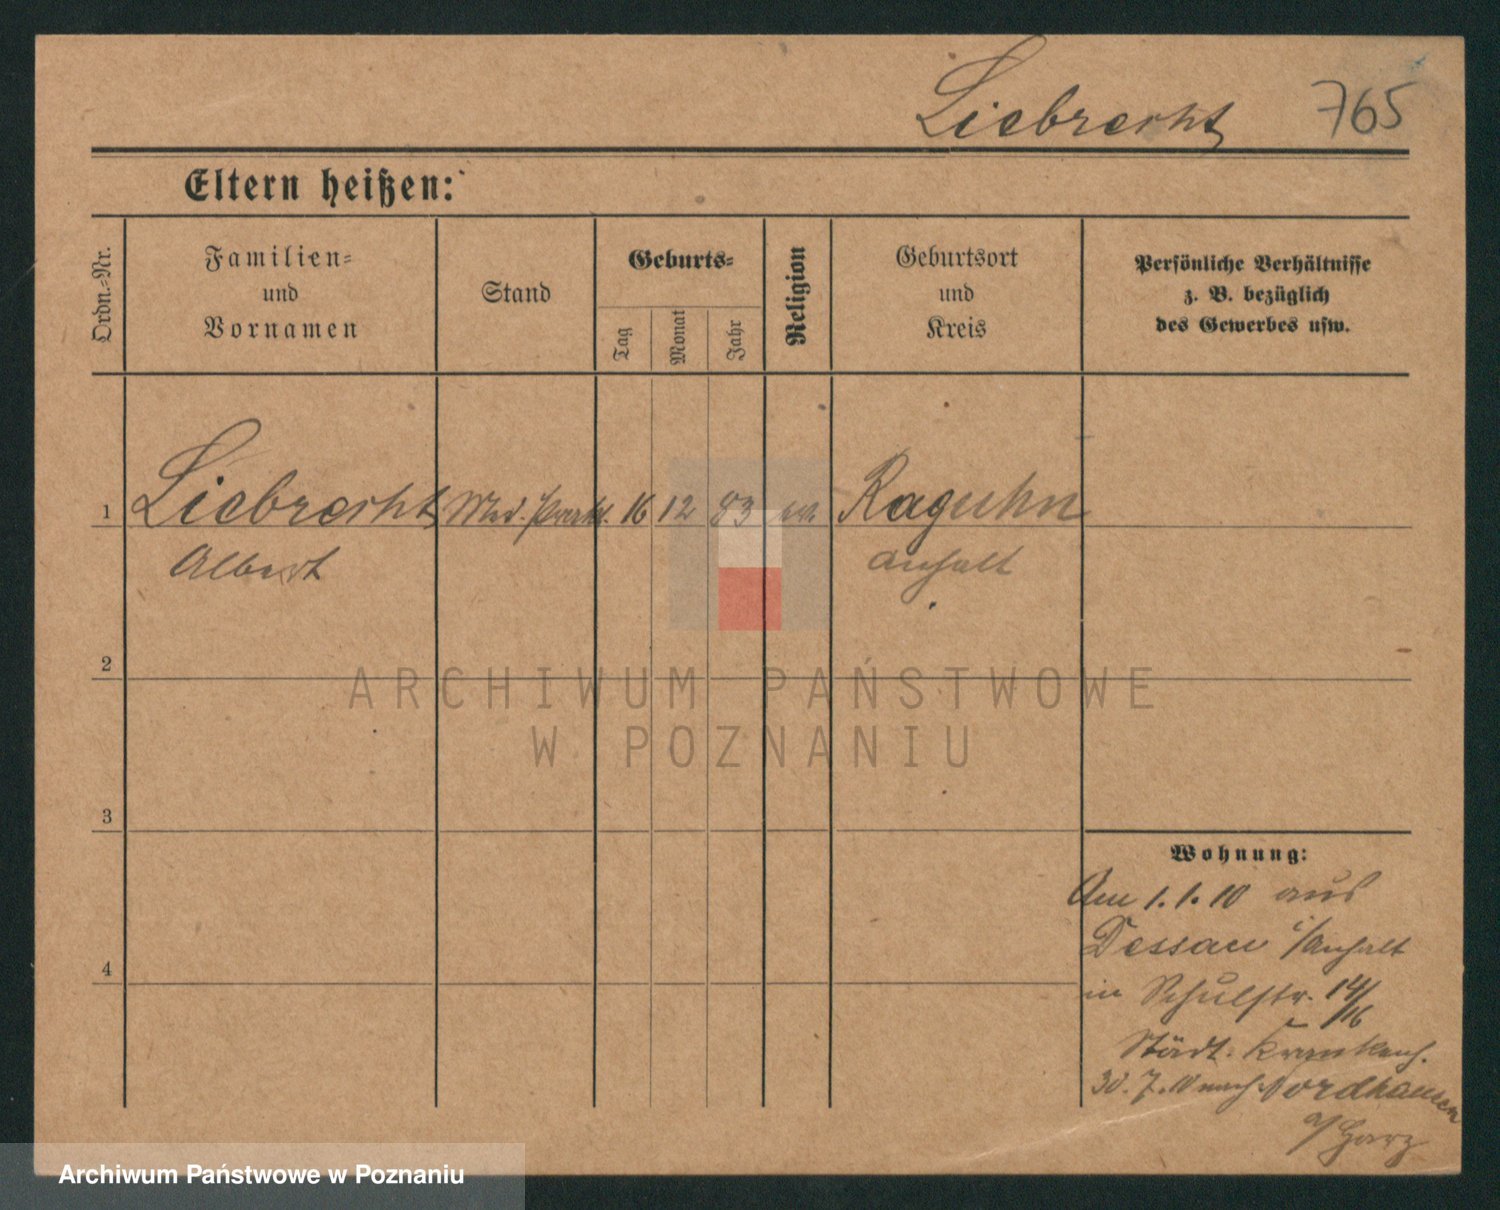 Liebrecht 765
Eltern heißen:
Ordn.-Nr.
Familien-
und
Vornamen
Stand
Geburts-
Tag
Monat
Jahr
Religion
Geburtsort
und
Kreis
Persönliche Verhältnisse
z. B. bezüglich
des Gewerbes usw.
1 Liebrecht Med. prakt. 16 12 83 ev. Raguhn
Albert Anhalt
2
ARCHIWUM PAŃSTWOWE
W POZNANIU
3
Wohnung:
Am 1.1.10 aus
Dessau i/Anhalt
4
in Schulstr. 14/16
Städt. Krankenh.
30.7.10 nach Nordhausen
a/Harz
Archiwum Państwowe w Poznaniu